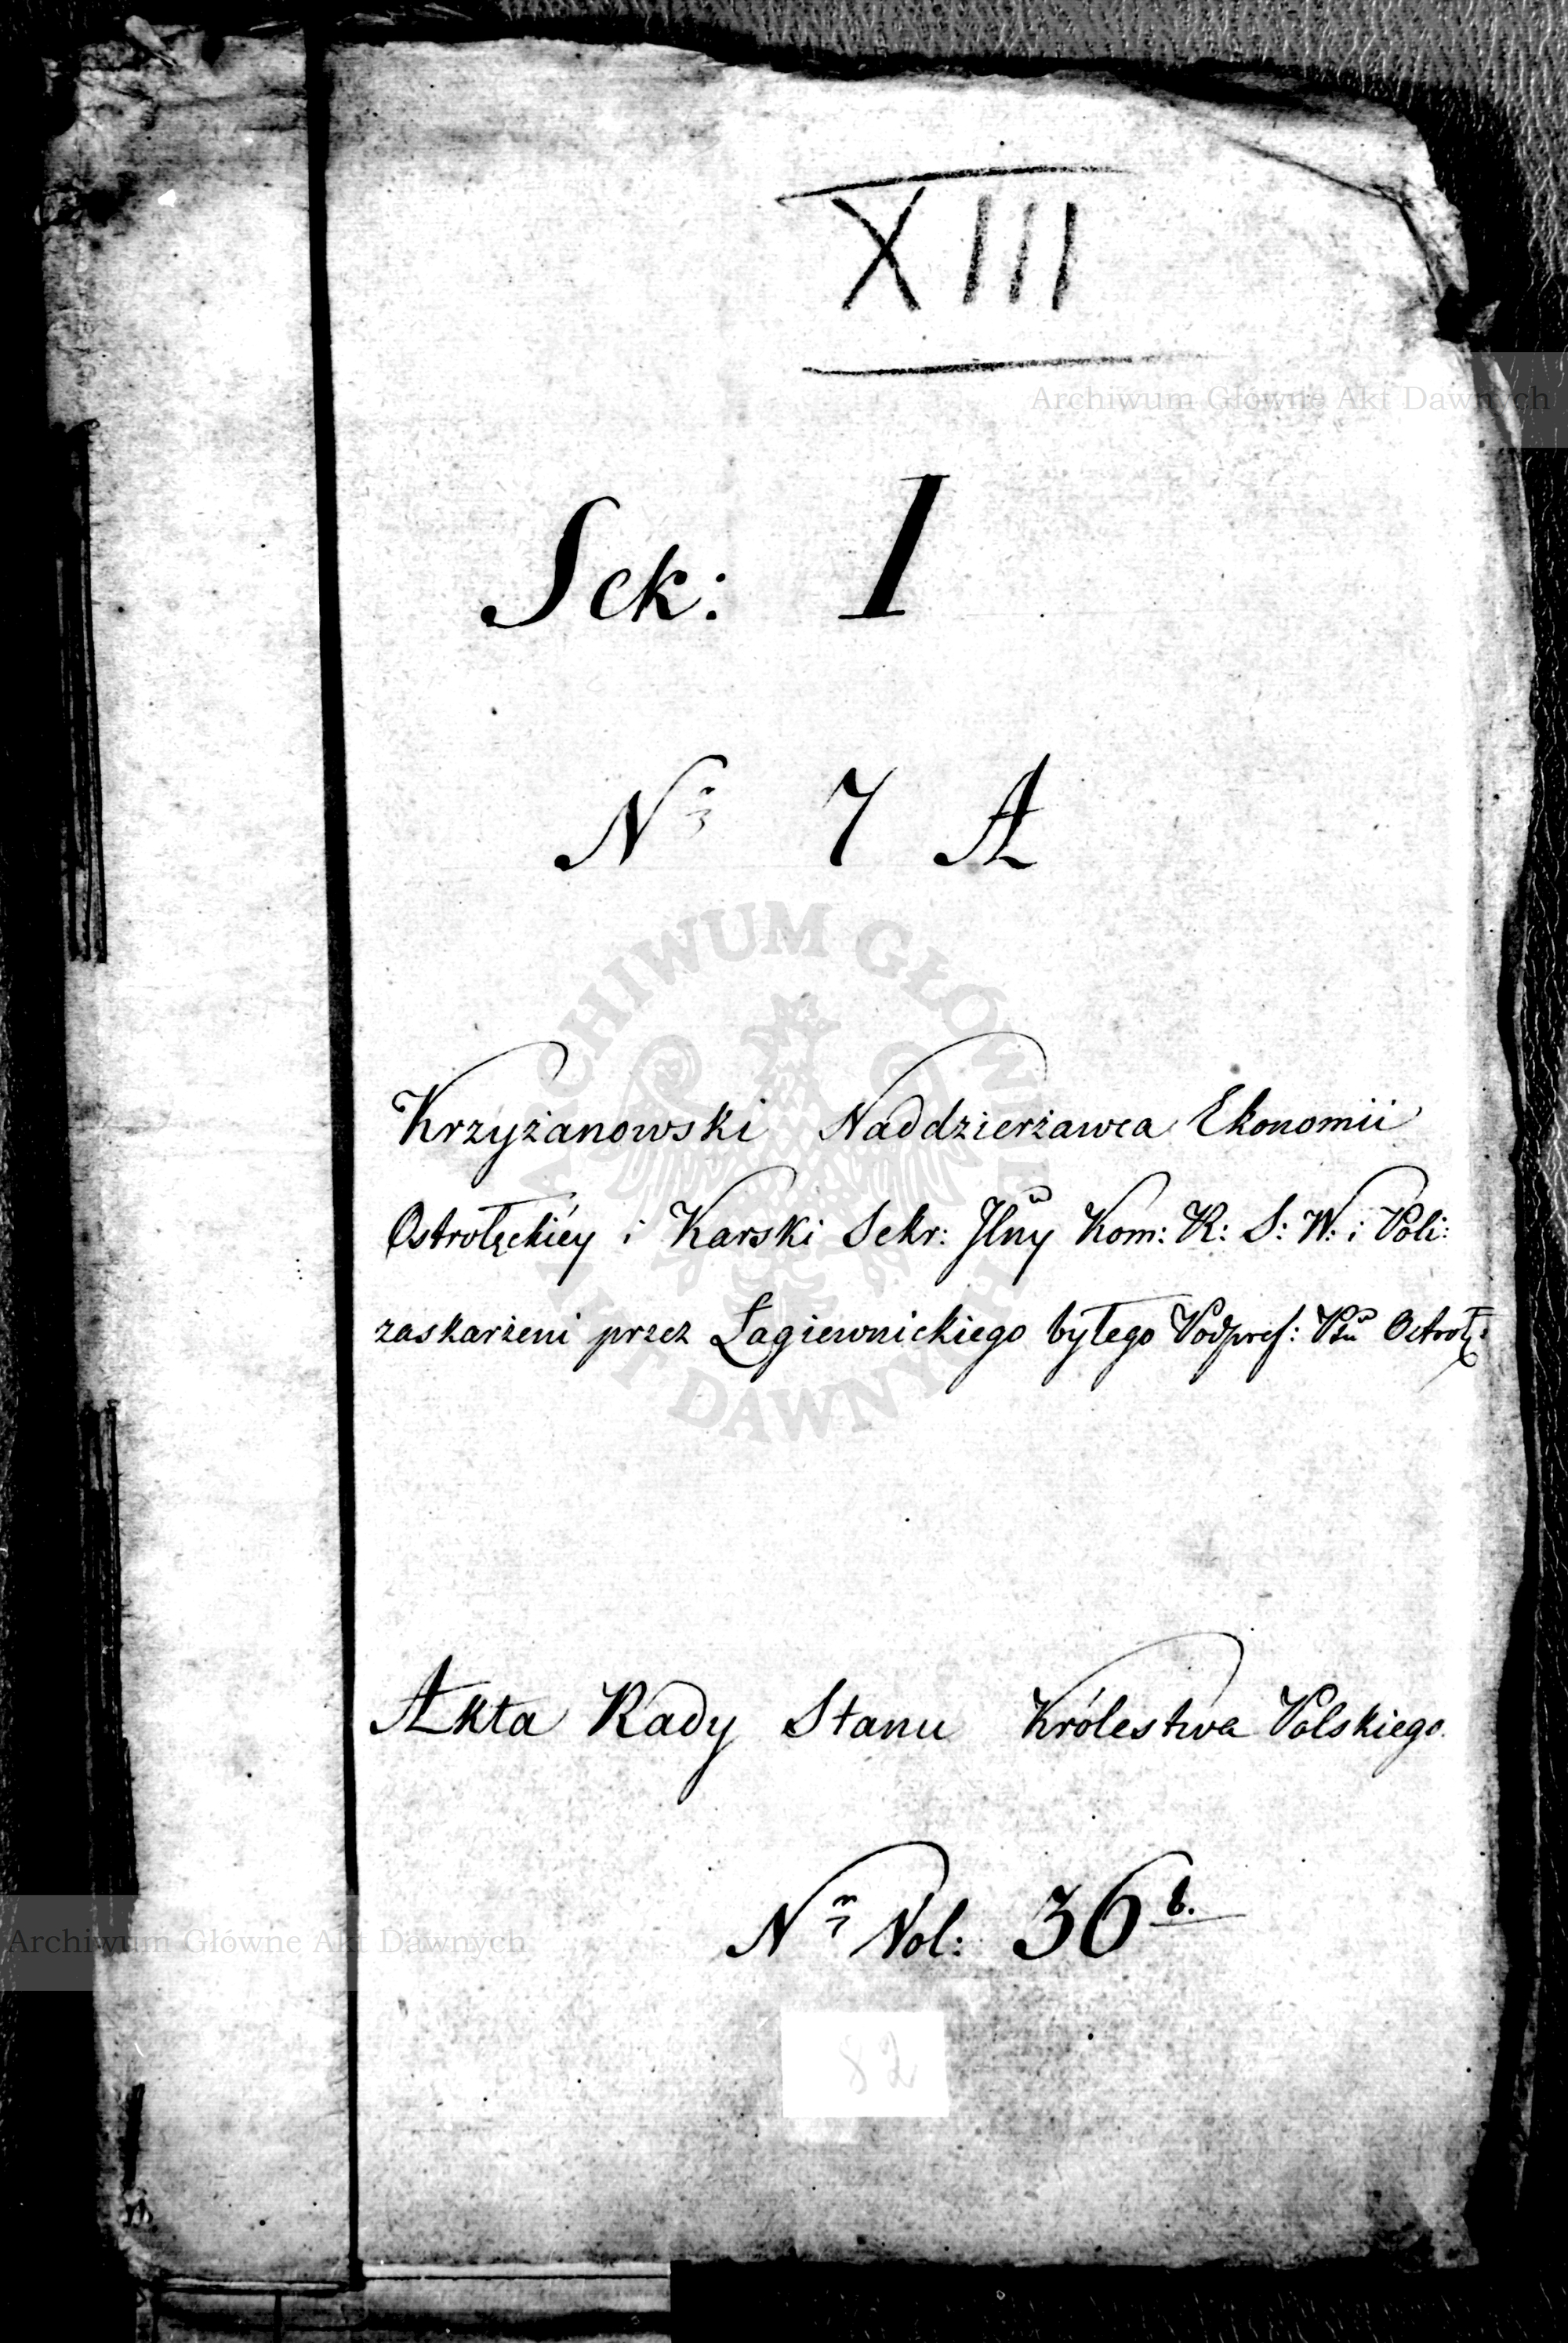 XIII
Archiwum Główne Akt Dawnych
Sek: I
Nr 7 A
ARCHIWUM GŁÓWNE AKT DAWNYCH
Krzyżanowski Naddzierżawca Ekonomii
Ostrołęckiéy i Karski Sekr: Jlny Kom: R: S: W: i Poli:
zaskarżeni przez Łagiewnickiego byłego Podpref: Ptu Ostrołę:
Akta Rady Stanu Królestwa Polskiego.
Nr Vol: 36 b.
Archiwum Główne Akt Dawnych
82